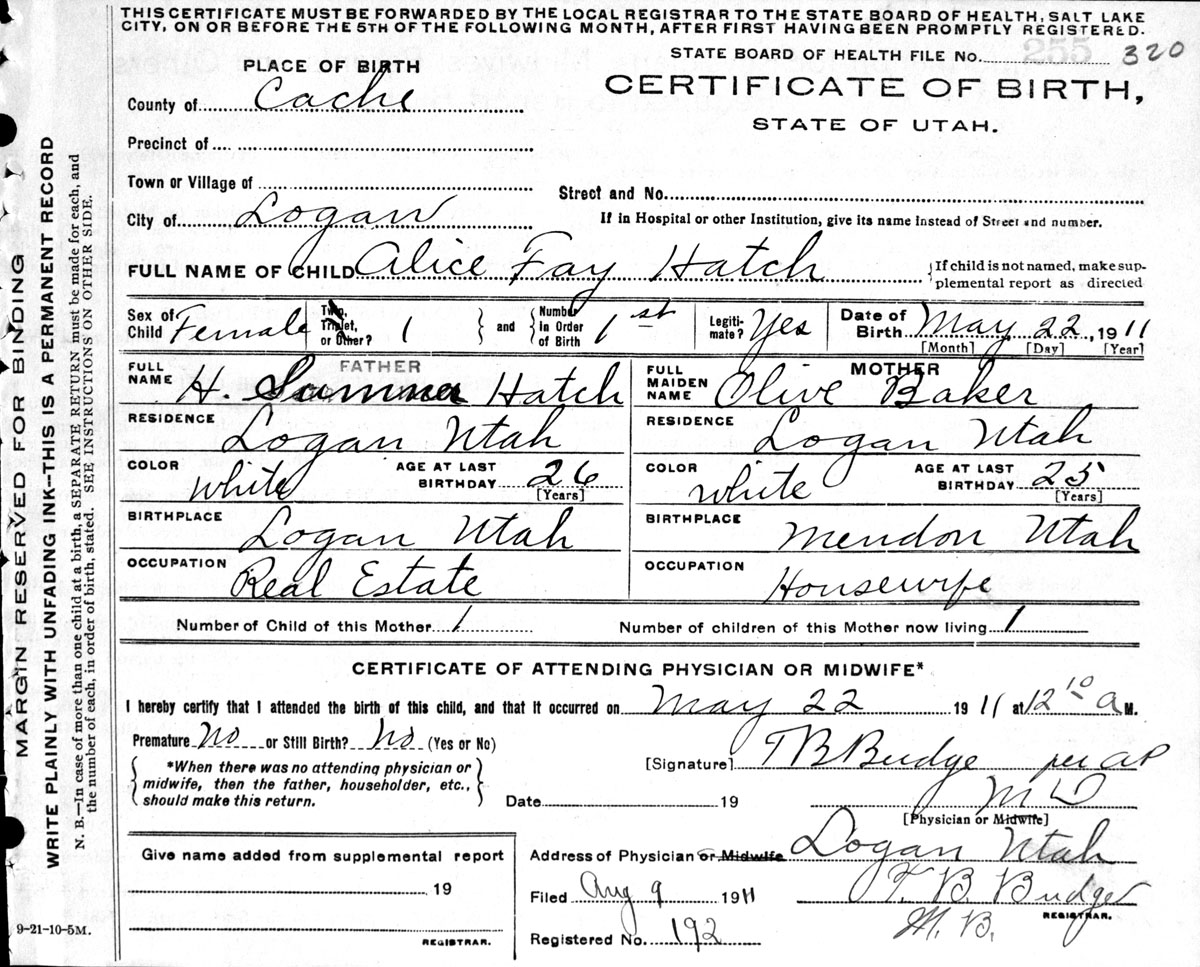 THIS CERTIFICATE MUST BE FORWARDED BY THE LOCAL REGISTRAR TO THE STATE BOARD OF HEALTH, SALT LAKE
CITY, ON OR BEFORE THE 5TH OF THE FOLLOWING MONTH, AFTER FIRST HAVING BEEN PROMPTLY REGISTERED.
STATE BOARD OF HEALTH FILE No. 320
PLACE OF BIRTH
CERTIFICATE OF BIRTH,
STATE OF UTAH.
County of Cache
Precinct of
Town or Village of
Street and No.
City of Logan
If in Hospital or other Institution, give its name Instead of Street and number.
FULL NAME OF CHILD Alice Fay Hatch
{If child is not named, make sup-
plemental report as directed
Sex of Child Female
Two, Triplet, or Other? 1
and
Number in Order of Birth 1st
Legiti-mate? Yes
Date of Birth May 22, 1911
[Month] [Day] [Year]
FATHER
FULL NAME H. Sumner Hatch
RESIDENCE Logan Utah
COLOR White
AGE AT LAST BIRTHDAY 26
[Years]
BIRTHPLACE Logan Utah
OCCUPATION Real Estate
MOTHER
FULL MAIDEN NAME Olive Baker
RESIDENCE Logan Utah
COLOR White
AGE AT LAST BIRTHDAY 25
[Years]
BIRTHPLACE Mendon Utah
OCCUPATION Housewife
Number of Child of this Mother 1
Number of children of this Mother now living 1
CERTIFICATE OF ATTENDING PHYSICIAN OR MIDWIFE*
I hereby certify that I attended the birth of this child, and that it occurred on May 22 1911 at 12 10 a M.
Premature No or Still Birth? No (Yes or No)
{*When there was no attending physician or
midwife, then the father, householder, etc.,
should make this return.}
[Signature] T B Budge per AP
Date 19
M D
[Physician or Midwife]
Address of Physician or Midwife Logan Utah
Give name added from supplemental report
19
REGISTRAR.
Filed Aug 9 1911
T. B. Budge
M. B.
REGISTRAR.
Registered No. 192
9-21-10-5M.
MARGIN RESERVED FOR BINDING
WRITE PLAINLY WITH UNFADING INK—THIS IS A PERMANENT RECORD
N. B.—In case of more than one child at a birth, a SEPARATE RETURN must be made for each, and
the number of each, in order of birth, stated. SEE INSTRUCTIONS ON OTHER SIDE.